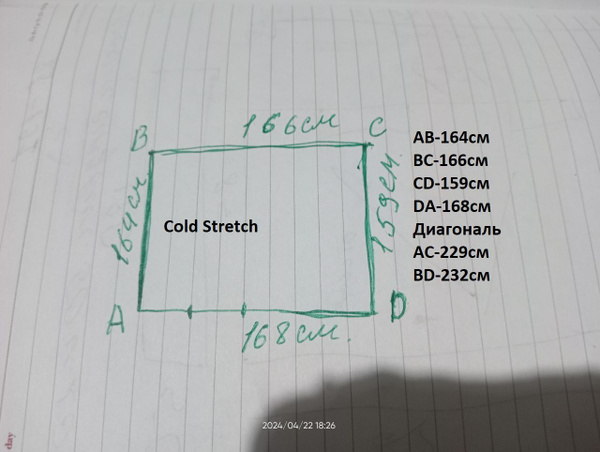 B
166см
C
164см
Cold Stretch
159см.
A
168см.
D
AB-164см
BC-166см
CD-159см
DA-168см
Диагональ
AC-229см
BD-232см
2024/04/22 18:26
day